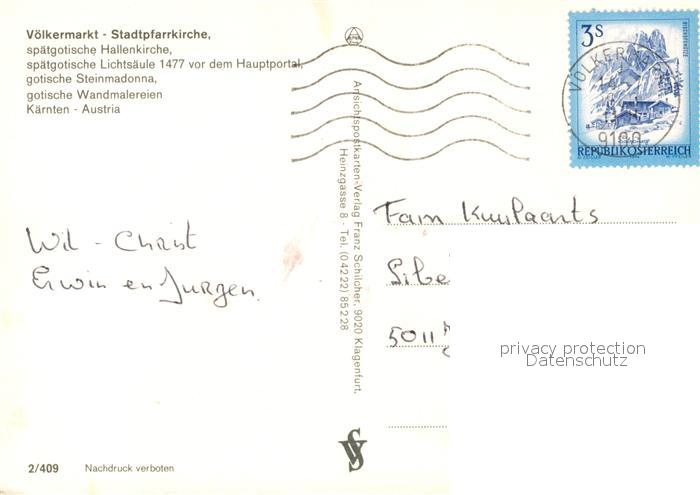 Völkermarkt - Stadtpfarrkirche,
spätgotische Hallenkirche,
spätgotische Lichtsäule 1477 vor dem Hauptportal,
gotische Steinmadonna,
gotische Wandmalereien
Kärnten - Austria
Wil - Christ
Erwin en Jurgen.
Ansichtspostkarten-Verlag Franz Schilcher, 9020 Klagenfurt,
Heinzgasse 8 - Tel. (04222) 85228
3S
REPUBLIK ÖSTERREICH
VÖLKERM
9100
Fam
5011
privacy protection
Datenschutz
2/409
Nachdruck verboten